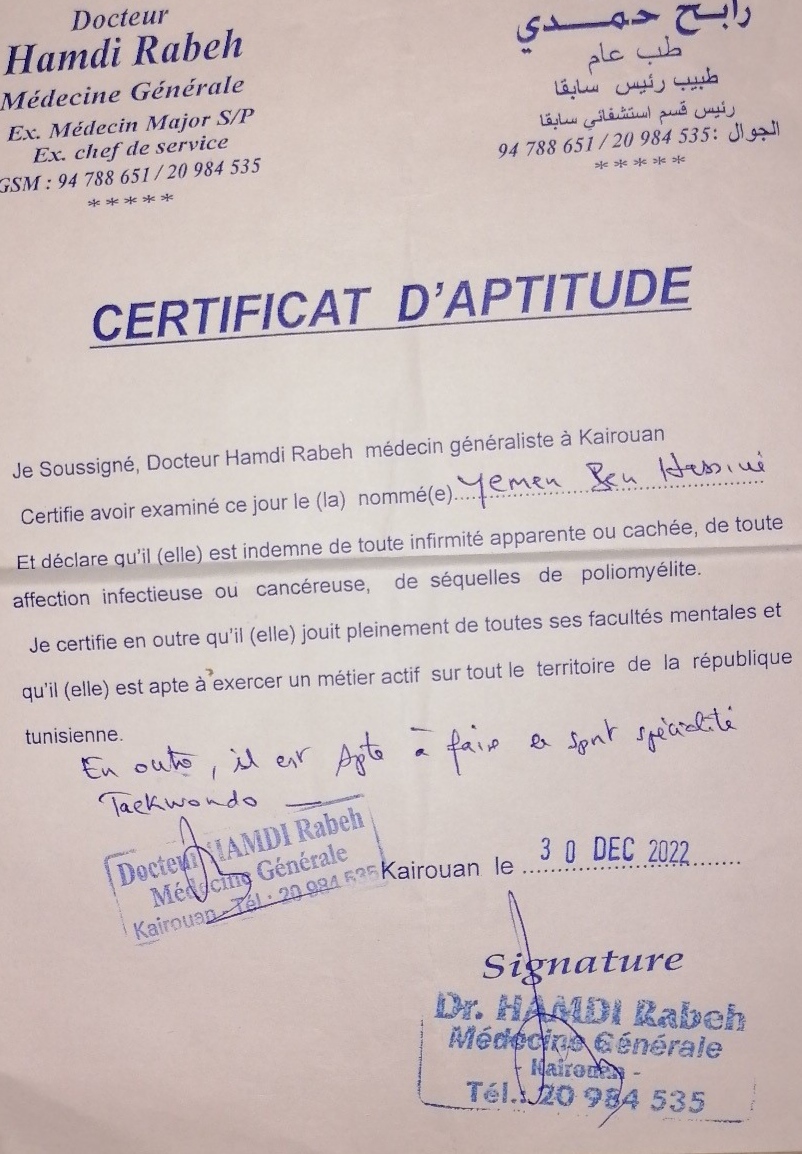 Docteur
Hamdi Rabeh
Médecine Générale
Ex. Médecin Major S/P
Ex. chef de service
GSM : 94 788 651 / 20 984 535
*****
رابح حمدي
طب عام
طبيب رئيس سابقا
رئيس قسم استشفائي سابقا
الجوال :94 788 651 / 20 984 535
*****
CERTIFICAT D'APTITUDE
Je Soussigné, Docteur Hamdi Rabeh médecin généraliste à Kairouan
Certifie avoir examiné ce jour le (la) nommé(e)....Yemen Ben Hassine
Et déclare qu'il (elle) est indemne de toute infirmité apparente ou cachée, de toute
affection infectieuse ou cancéreuse, de séquelles de poliomyélite.
Je certifie en outre qu'il (elle) jouit pleinement de toutes ses facultés mentales et
qu'il (elle) est apte à exercer un métier actif sur tout le territoire de la république
tunisienne.
En outre, il est Apte à faire sport spécialité
Taekwondo
Docteur HAMDI Rabeh
Médecine Générale
Kairouan - Tél : 20 984 535
Kairouan le 30 DEC 2022
Signature
Dr. HAMDI Rabeh
Médecine Générale
- Kairouan -
Tél.: 20 984 535